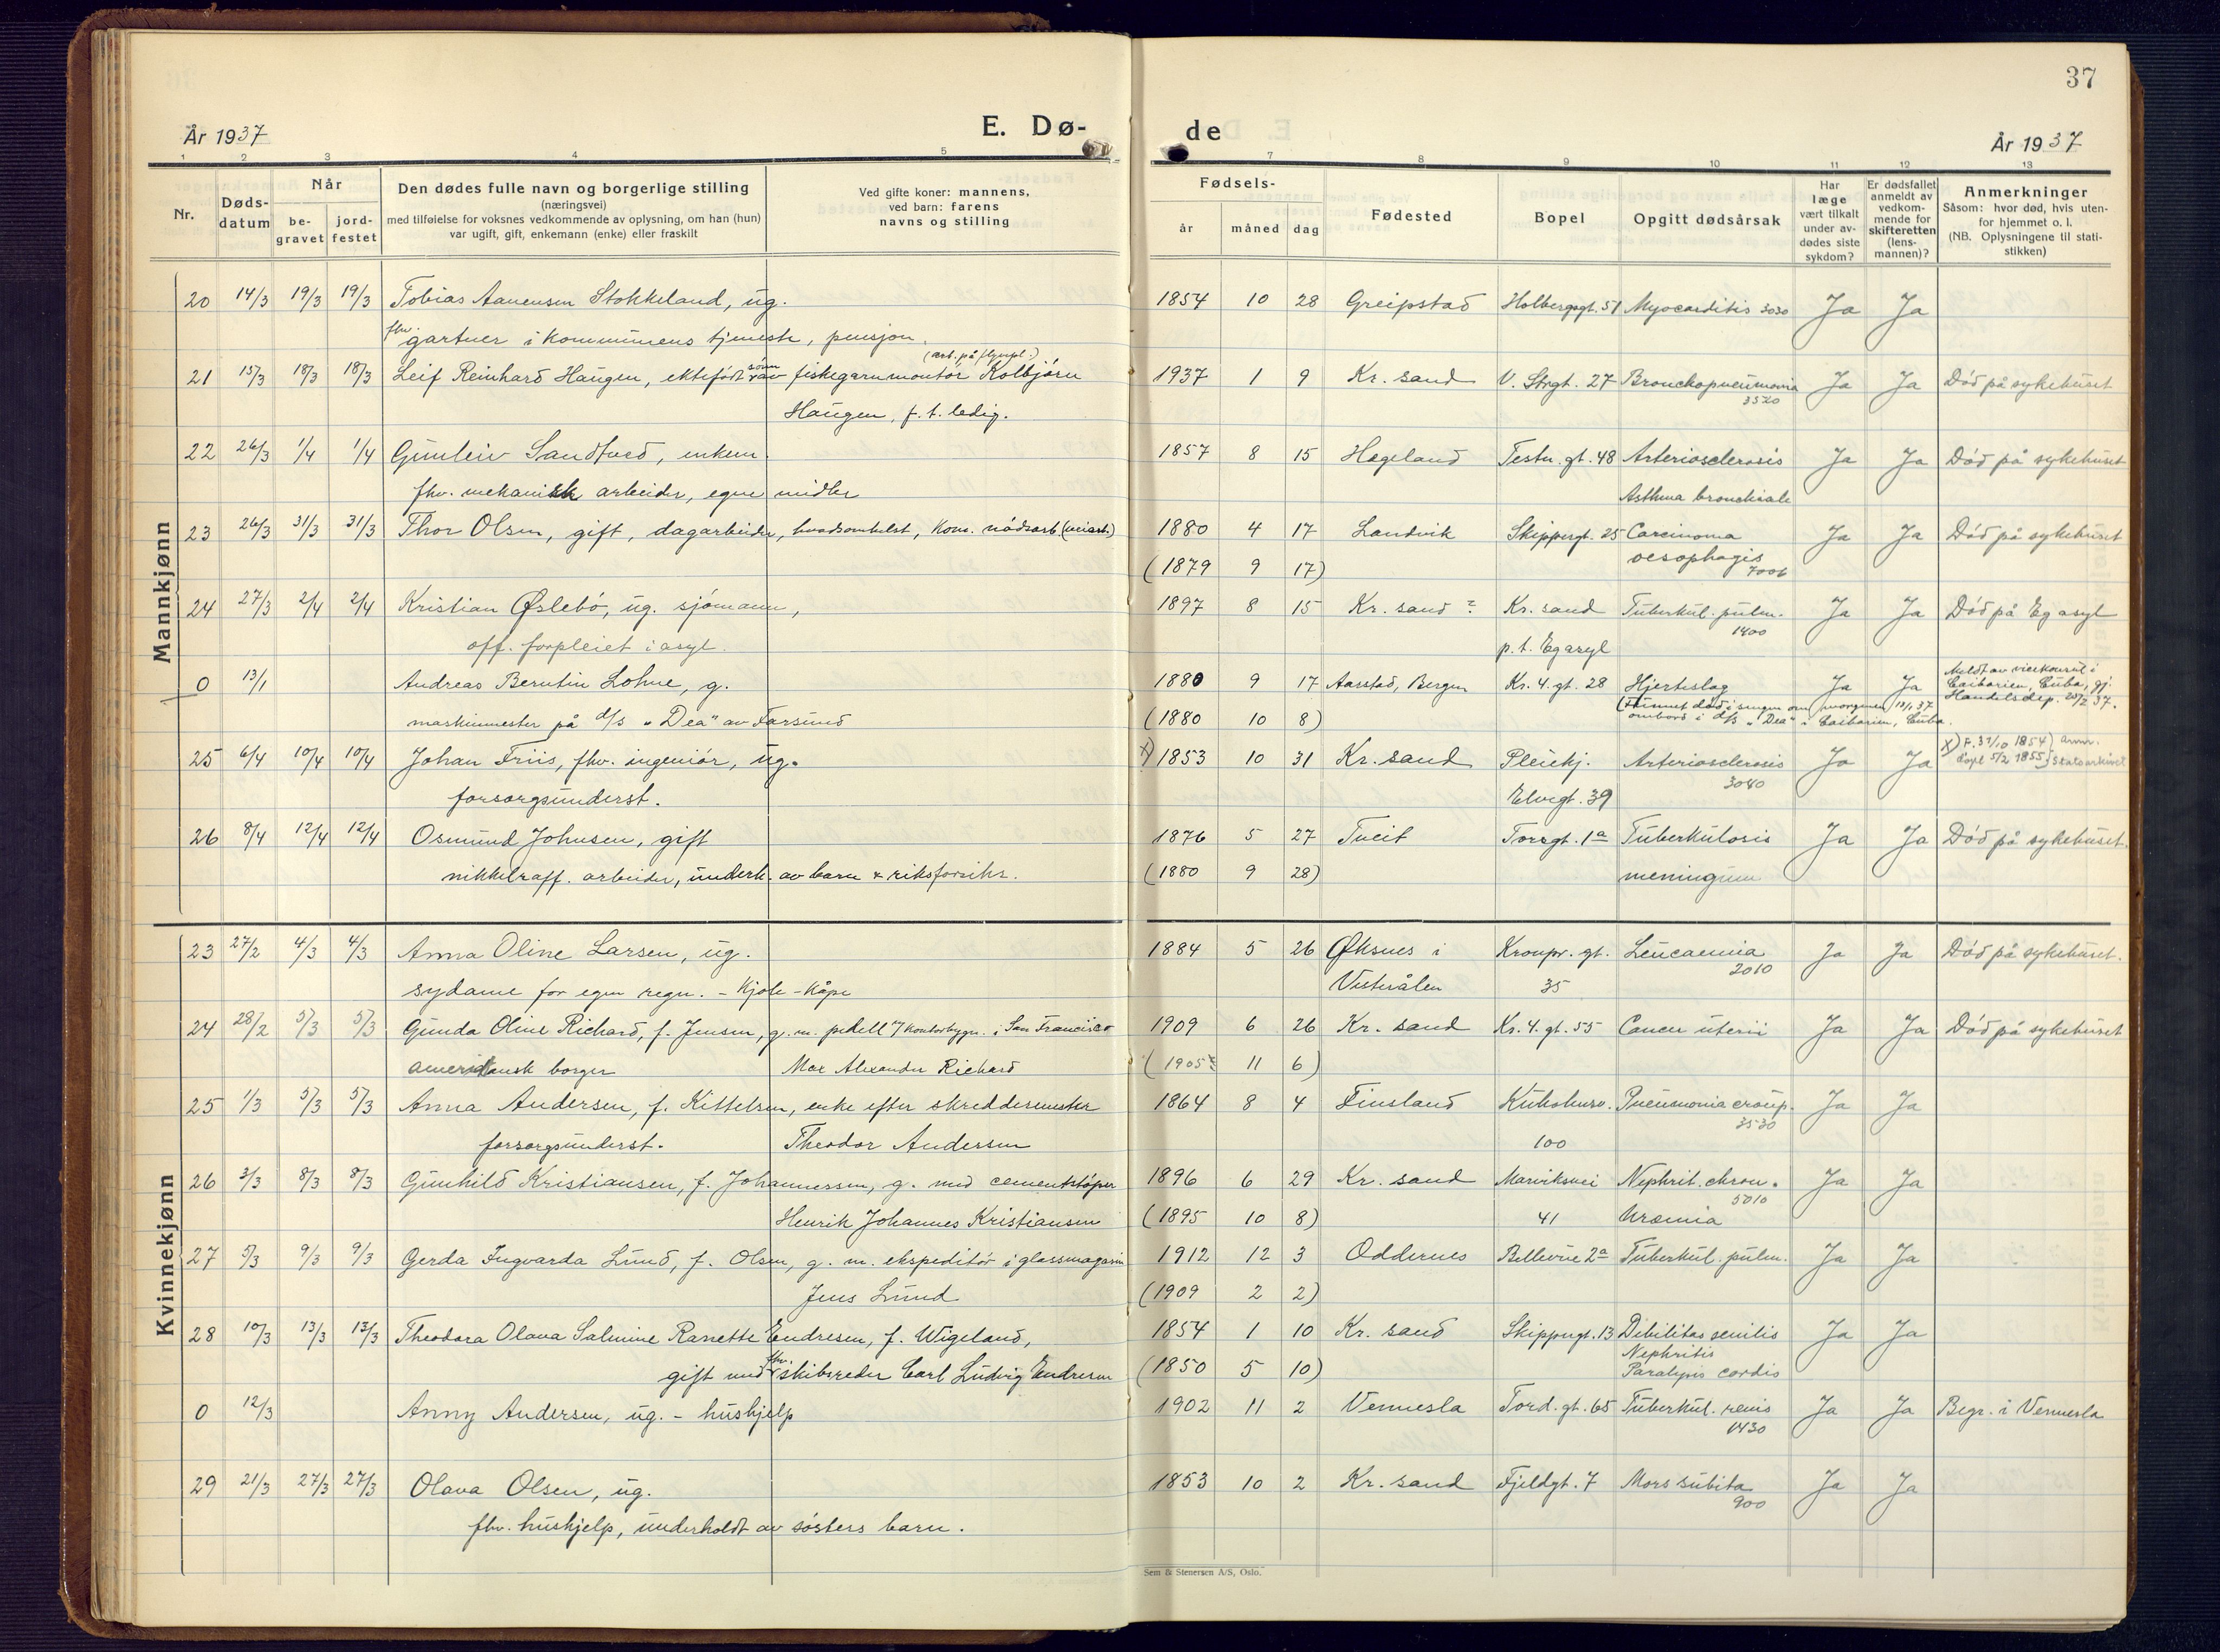 37
År 1937
E. Dø-
de
År 1937
1 2 3 4 5 7 8 9 10 11 12 13
Nr.
Døds-
datum
Når
be-
gravet
jord-
festet
Den dødes fulle navn og borgerlige stilling
(næringsvei)
med tilføielse for voksnes vedkommende av oplysning, om han (hun)
var ugift, gift, enkemann (enke) eller fraskilt
Ved gifte koner: mannens,
ved barn: farens
navns og stilling
Fødsels-
år måned dag
Fødested
Bopel
Opgitt dødsårsak
Har
læge
vært tilkalt
under av-
dødes siste
sykdom?
Er dødsfallet
anmeldt av
vedkom-
mende for
skifteretten
(lens-
mannen)?
Anmerkninger
Såsom: hvor død, hvis uten-
for hjemmet o. l.
(NB. Oplysningene til stati-
stikken)
Mannkjønn
20 14/3 19/3 19/3 Tobias Aanensen Stokkeland, ug. 1854 10 28 Greipstad Holbergsgt. 51 Myocarditis 3030 Ja Ja
fhv. gartner i kommunens tjeneste, pensjon.
(arb. på flypl.)
21 15/3 18/3 18/3 Leif Reinhard Haugen, ektefødt sønn av fiskegarnmontør Kolbjørn 1937 1 9 Kr. sand V. Strgt. 27 Bronchopneumonia Ja Ja Død på sykehuset
3520
Haugen, f. t. ledig.
22 26/3 1/4 1/4 Gunleiv Sandtved, enkem. 1857 8 15 Hægeland Testn. gt. 48 Arteriosclerosis Ja Ja Død på sykehuset
fhv. mekanisk arbeider, egne midler Asthma bronchiale
23 26/3 31/3 31/3 Thor Olsen, gift, dagarbeider, hvadsomhelst, kom. nødsarb. (veiarb.) 1880 4 17 Landvik Skippergt. 25 Carcinoma Ja Ja Død på sykehuset
(1879 9 17) oesophagis
7006
24 27/3 2/4 2/4 Kristian Øslebø, ug. sjømann, 1897 8 15 Kr. sand ? Kr. sand Tuberkul. pulm. Ja Ja Død på Eg asyl
1400
off. forpleiet i asyl. p. t. Eg asyl
0 13/1 Andreas Berntin Lohne, g. 1880 9 17 Aarstad, Bergen Kr. 4. gt. 28 Hjerteslag Ja Ja Meldt av visekonsul i
Caibarien, Cuba, gj.
Handelsdep. 25/2 37.
maskinmester på d/s "Dea" av Farsund (1880 10 8) (Funnet død i sengen om morgenen 13/1 37
ombord i d/s "Dea" i Caibarien, Cuba.
25 6/4 10/4 10/4 Johan Friis, fhv. ingeniør, ug. x) 1853 10 31 Kr. sand Pleiehj. Arteriosclerosis Ja Ja x) F. 31/10 1854) anm.
døpt 5/2 1855) Statsarkivet
3040
forsorgsunderst. Elvegt. 39
26 8/4 12/4 12/4 Osmund Johnsen, gift 1876 5 27 Tveit Torvgt. 1a Tuberkulosis Ja Ja Død på sykehuset.
nikkelraff. arbeider, underh. av barn & riksforsikr. (1880 9 28) meningum
Kvinnekjønn
23 27/2 4/3 4/3 Anna Oline Larsen, ug. 1884 5 26 Øksnes i Kronpr. gt. Leucaemia Ja Ja Død på sykehuset.
2010
sydame for egen regn. - Kjole-Kåpe Vesterålen 35
24 28/2 5/3 5/3 Gunda Oline Richard, f. Jensen, g. m. pedell v/ kontorbygn. i San Francisco 1909 6 26 Kr. sand Kr. 4. gt. 55 Cancer uterii Ja Ja Død på sykehuset
amerikansk borger Max Alexander Richard (1905 11 6)
25 1/3 5/3 5/3 Anna Andersen, f. Kittelsen, enke efter skreddermester 1864 8 4 Finsland Kuholmsv. Pneumonia croup. Ja Ja
3530
forsorgsunderst. Theodor Andersen 100
26 3/3 8/3 8/3 Gunhild Kristiansen, f. Johannessen, g. med cementstøper 1896 6 29 Kr. sand Marviksvei Nephrit. chron. Ja Ja
5010
Henrik Johannes Kristiansen (1895 10 8) 41 Uræmia
27 5/3 9/3 9/3 Gerda Ingvarda Lund, f. Olsen, g. m. ekspeditør i glassmagasin 1912 12 3 Oddernes Bellevue 2a Tuberkul. pulm. Ja Ja
Jens Lund (1909 2 2)
28 10/3 13/3 13/3 Theodora Olava Salmine Ranette Endresen, f. Wigeland, 1854 1 10 Kr. sand Skippergt. 13 Debilitas senilis Ja Ja
Nephritis
gift med fhv. skibsreder Carl Ludvig Endresen (1850 5 10) Paralysis cordis
0 12/3 Anny Andersen, ug. - hushjelp 1902 11 2 Vennesla Tord. gt. 65 Tuberkul. renis Ja Ja Begr. i Vennesla
1430
29 21/3 27/3 27/3 Olava Olsen, ug. 1853 10 2 Kr. sand Fjeldgt. 7 Mors subita Ja Ja
900
fhv. hushjelp, underholdt av søsters barn.
Sem & Stenersen A/S, Oslo.